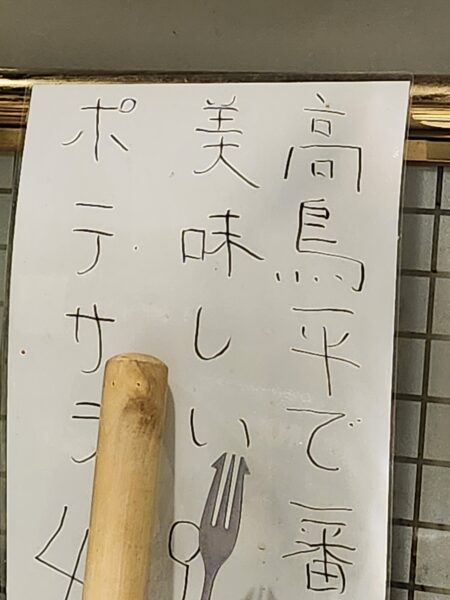 高鳥平で一番
美味しい
ポテサラ